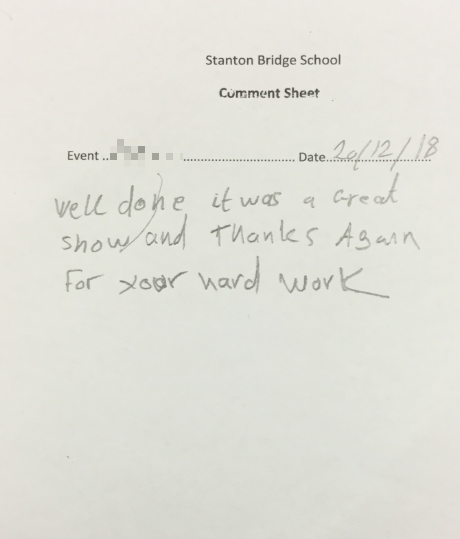 Stanton Bridge School
Comment Sheet
Event .. ................................... Date 20/12/18
Well done it was a Great
show and Thanks Again
For your hard work